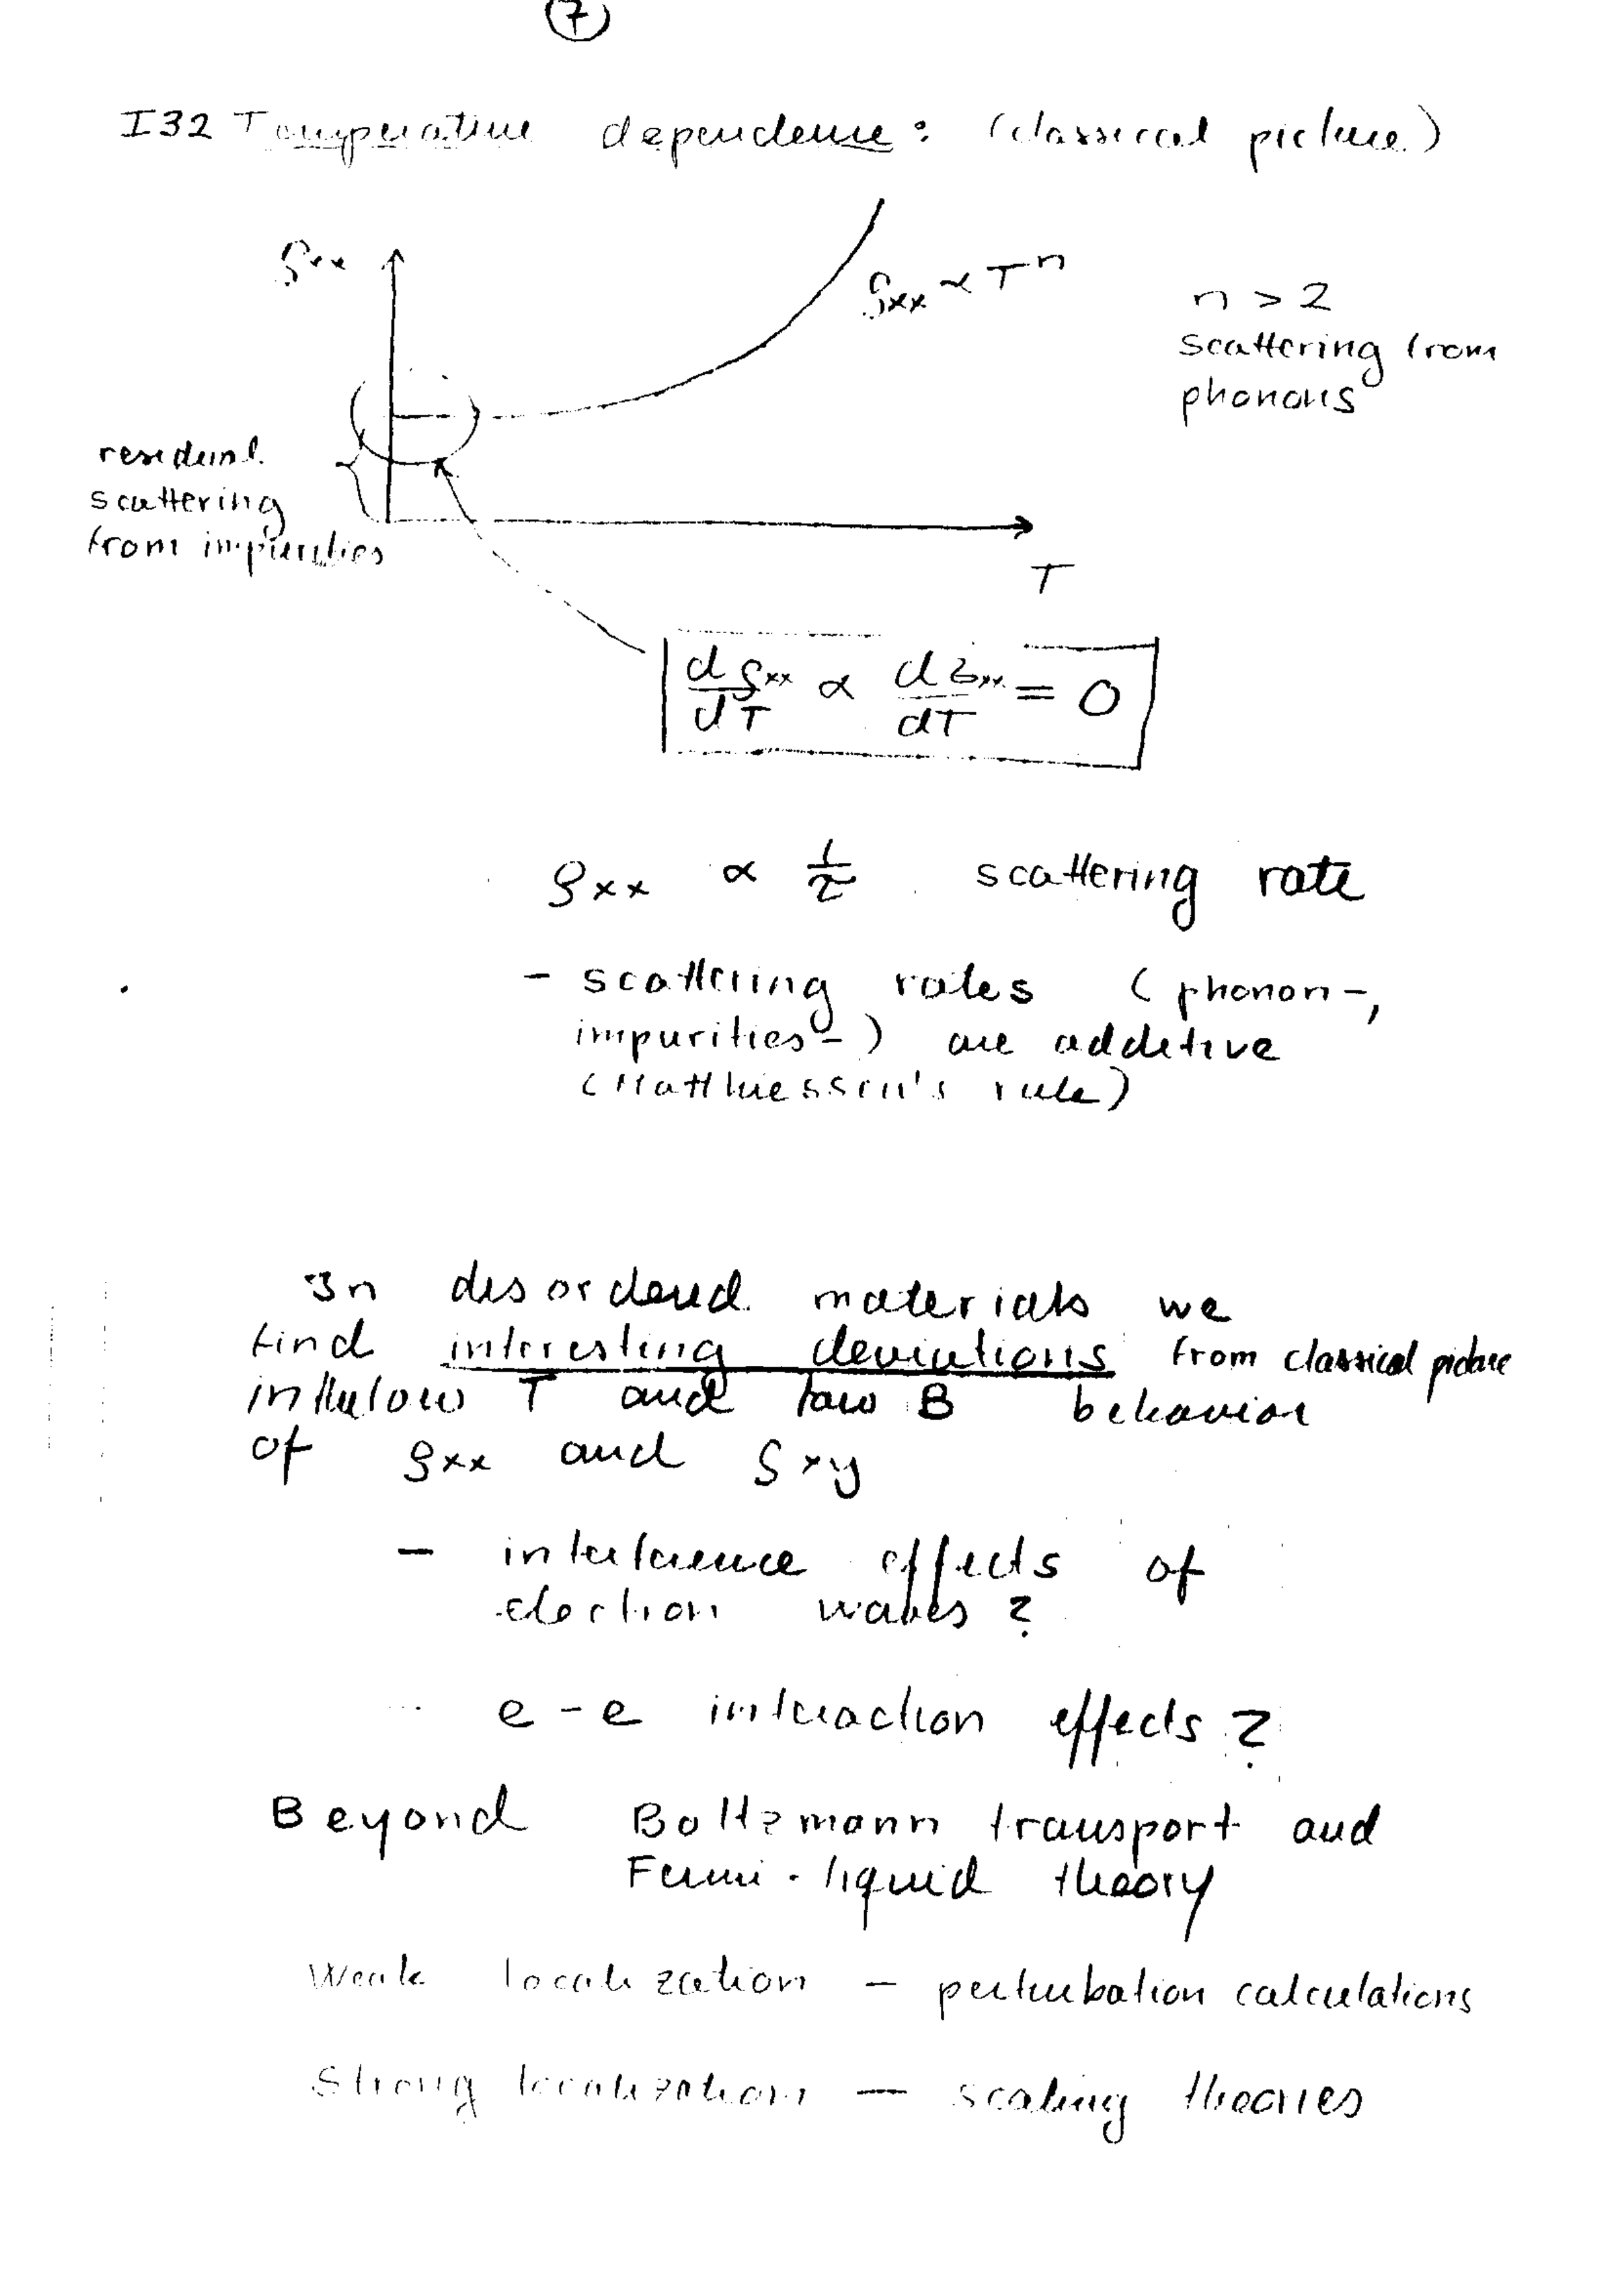 (7)
I32 Temperature dependence: (classical picture)
ρxx
ρxx ∝ T^n
n > 2
scattering from
phonons
residual
scattering
from impurities
T
dρxx/dT ∝ dσxx/dT = 0
ρxx ∝ 1/τ scattering rate
- scattering rates (phonon-,
impurities-) are additive
(Matthiessen's rule)
In disordered materials we
find interesting deviations from classical picture
in the low T and low B behavior
of ρxx and ρxy
- interference effects of
electron waves ?
- e-e interaction effects ?
Beyond Boltzmann transport and
Fermi-liquid theory
Weak localization - perturbation calculations
Strong localization - scaling theories